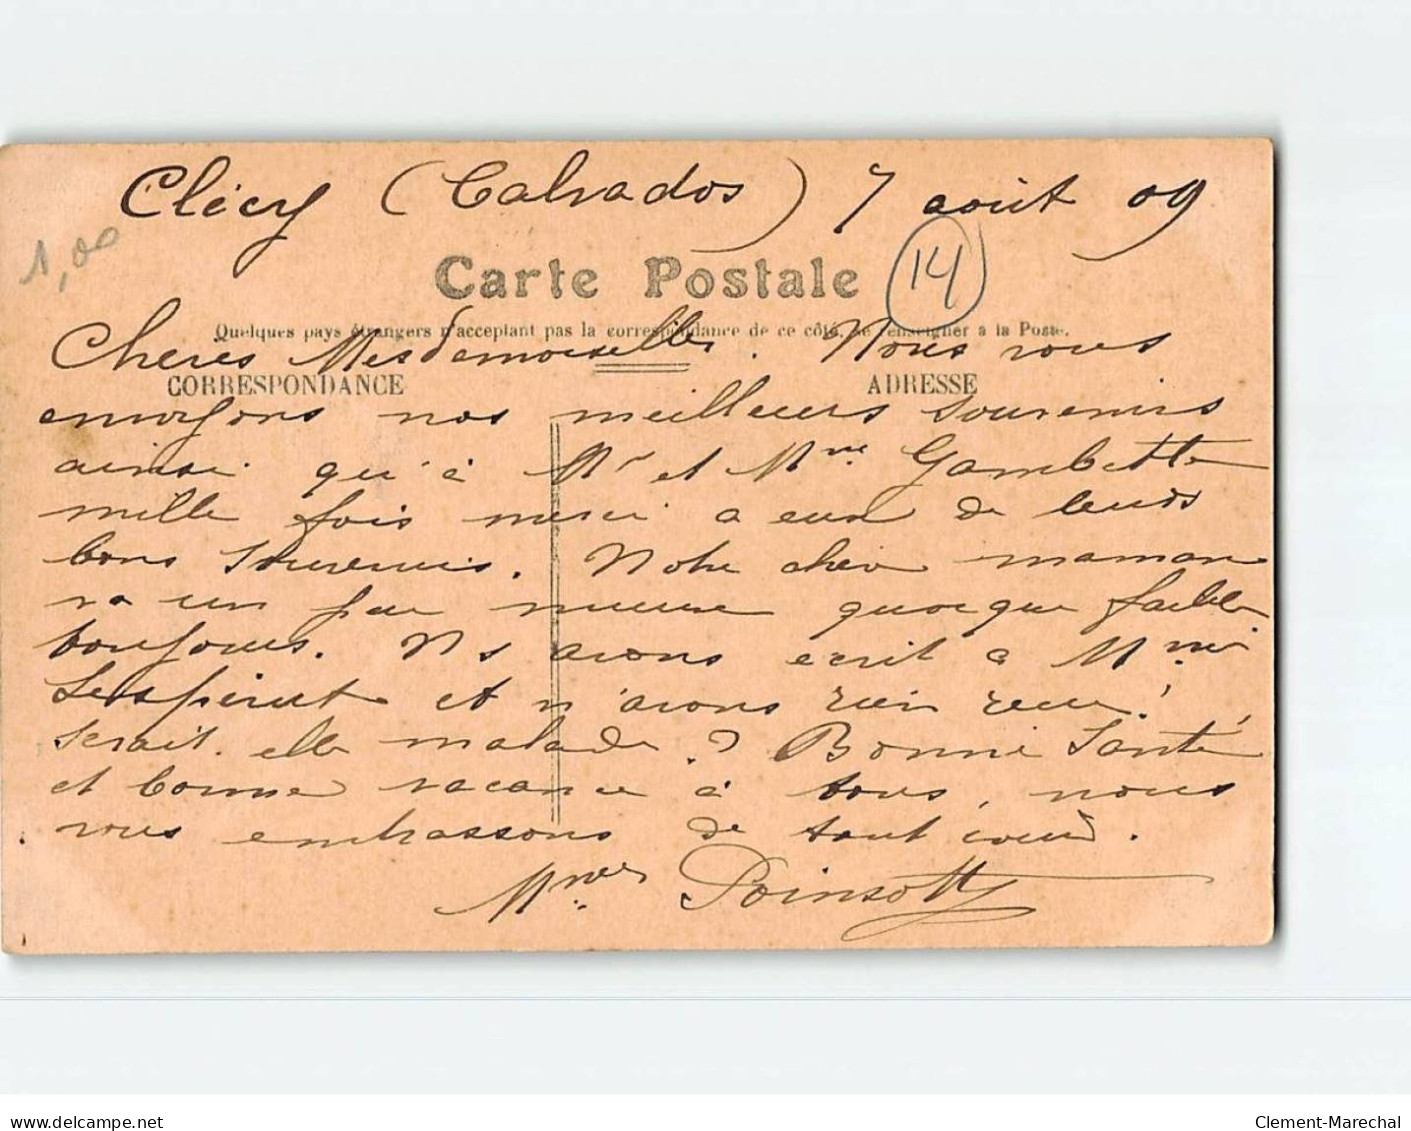 Clécy (Calvados) 7 août 09
1,00
Carte Postale
14
Quelques pays étrangers n'acceptant pas la correspondance de ce côté, se renseigner à la Poste.
Cheres Mesdemoiselles. Nous vous
CORRESPONDANCE ADRESSE
envoyons nos meilleurs souvenirs
ainsi qu'à Mr et Mme Gambette
mille fois merci a eux de leurs
bons souvenirs. Notre cher maman
va un peu mieux quoique faible
toujours. Ns avons ecrit a Mme
Lespérut et n'avons rien recu!
serait elle malade? Bonne Santé
et bonne vacance à tous, nous
vous embrassons de tout cœur.
Mmes Poinsott
www.delcampe.net
Clement-Marechal